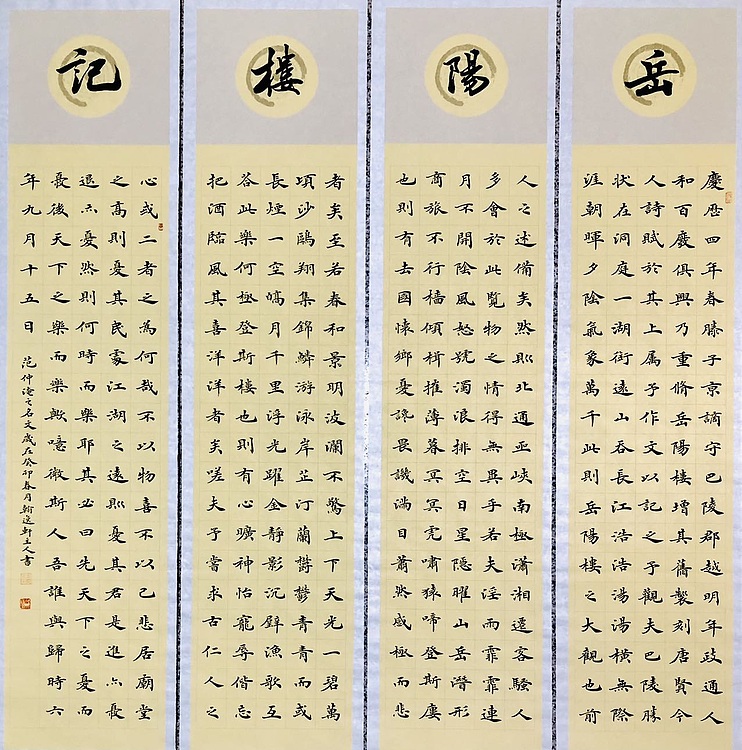 岳
陽
樓
記
慶歷四年春滕子京謫守巴陵郡越明年政通人
和百廢俱興乃重脩岳陽樓增其舊製刻唐賢今
人詩賦於其上属予作文以記之予觀夫巴陵勝
狀在洞庭一湖銜遠山吞長江浩浩湯湯橫無際
涯朝暉夕陰氣象萬千此則岳陽樓之大觀也前
人之述備矣然則北通巫峽南極瀟湘遷客騷人
多會於此覽物之情得無異乎若夫淫雨霏霏連
月不開陰風怒號濁浪排空日星隱曜山岳潛形
商旅不行檣傾楫摧薄暮冥冥虎嘯猿啼登斯樓
也則有去國懷鄉憂讒畏譏滿目蕭然感極而悲
者矣至若春和景明波瀾不驚上下天光一碧萬
頃沙鷗翔集錦鱗游泳岸芷汀蘭欝欝青青而或
長煙一空皓月千里浮光躍金靜影沉璧漁歌互
答此樂何極登斯樓也則有心曠神怡寵辱偕忘
把酒臨風其喜洋洋者矣嗟夫予嘗求古仁人之
心或二者之為何哉不以物喜不以己悲居廟堂
之高則憂其民處江湖之遠則憂其君是進亦憂
退亦憂然則何時而樂耶其必曰先天下之憂而
憂後天下之樂而樂歟噫微斯人吾誰與歸時六
年九月十五日
范仲淹之名文歲在癸卯春月翰逸軒主人書